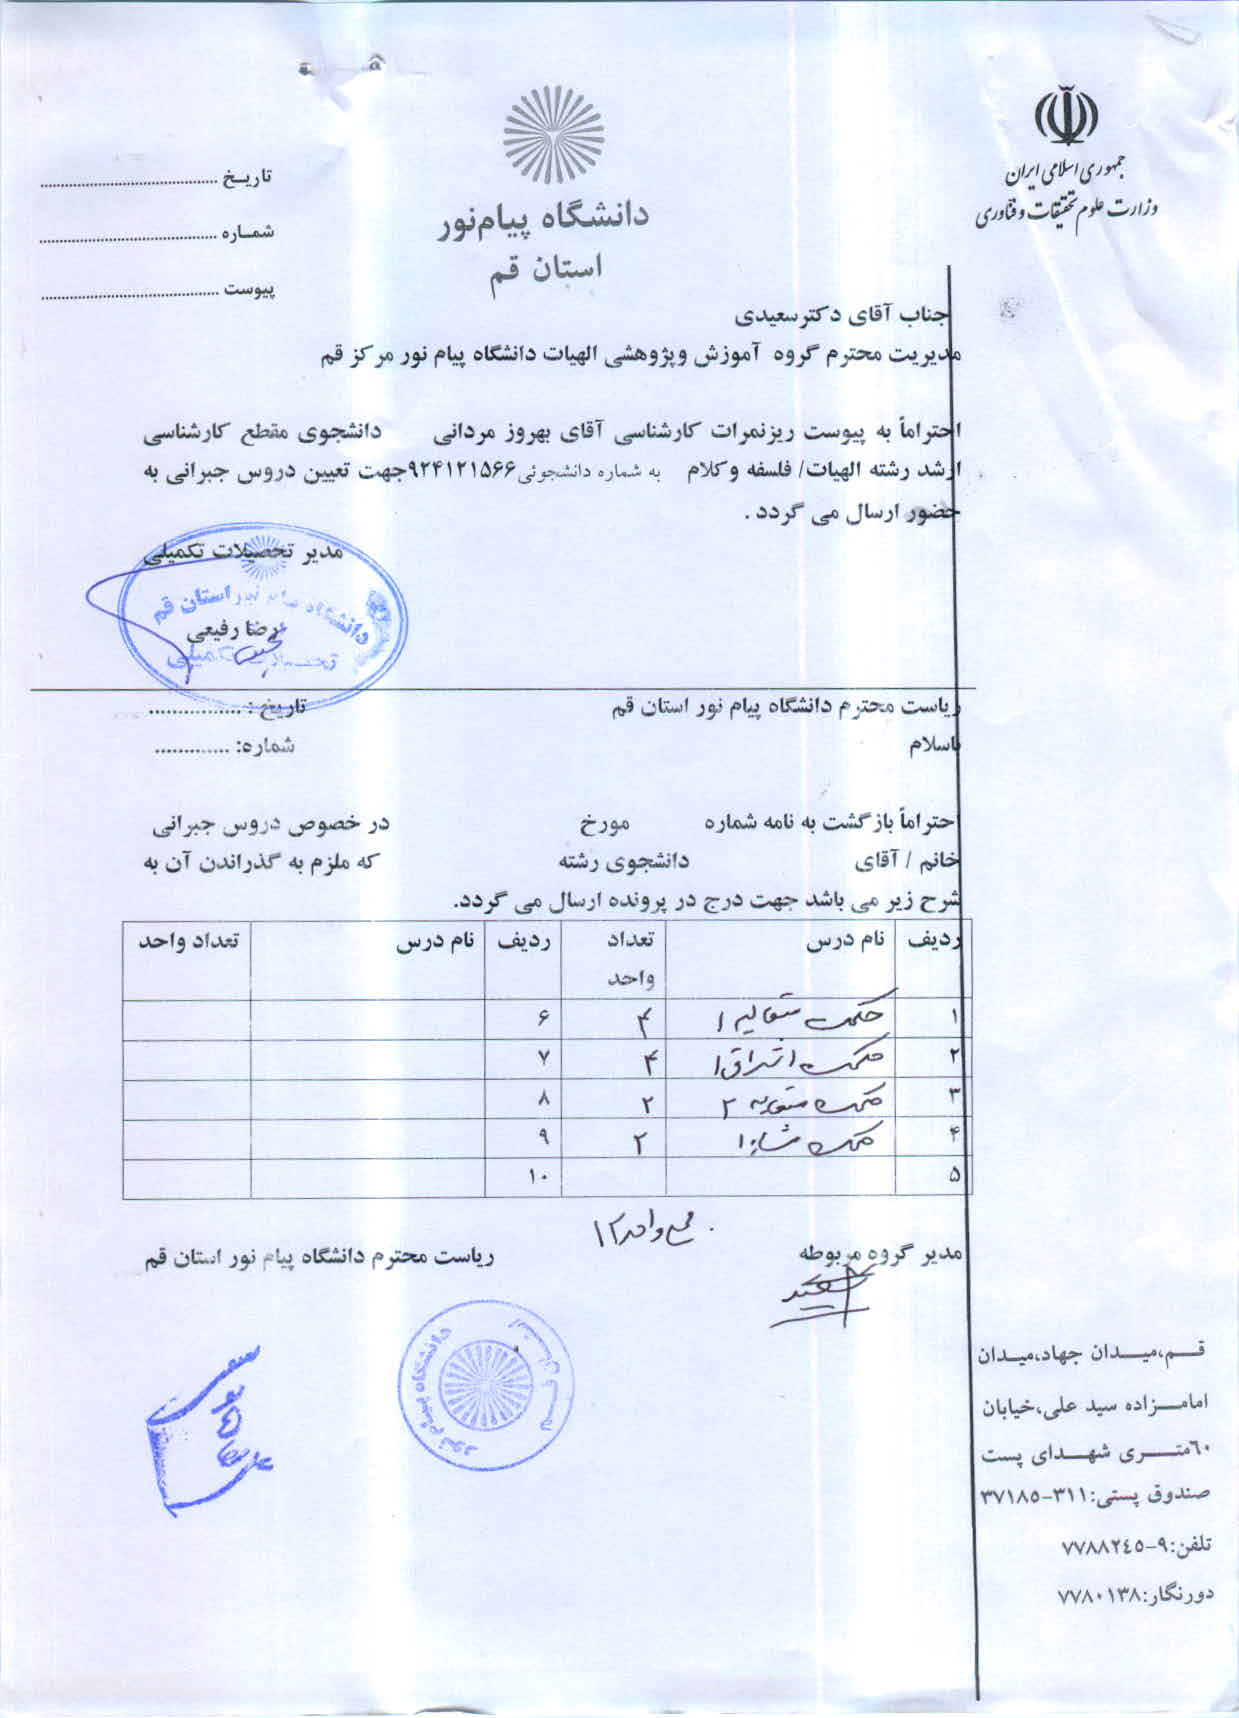 جمهوری اسلامی ایران
وزارت علوم تحقیقات و فناوری
دانشگاه پیام‌نور
استان قم
تاریـخ ............................................
شمـاره ............................................
پیوست ............................................
جناب آقای دکترسعیدی
مدیریت محترم گروه آموزش وپژوهشی الهیات دانشگاه پیام نور مرکز قم
احتراماً به پیوست ریزنمرات کارشناسی آقای بهروز مردانی دانشجوی مقطع کارشناسی
ارشد رشته الهیات/ فلسفه وکلام به شماره دانشجوئی ۹۲۴۱۲۱۵۶۶جهت تعیین دروس جبرانی به
حضور ارسال می گردد .
مدیر تحصیلات تکمیلی
دانشگاه پیام نور استان قم
رضا رفیعی
تحصیلات تکمیلی
ریاست محترم دانشگاه پیام نور استان قم
تاریخ : ................
باسلام
شماره: .............
احتراماً بازگشت به نامه شماره مورخ در خصوص دروس جبرانی
خانم / آقای دانشجوی رشته که ملزم به گذراندن آن به
شرح زیر می باشد جهت درج در پرونده ارسال می گردد.
ردیف نام درس تعداد واحد ردیف نام درس تعداد واحد
۱ حکمت متعالیه ۱ ۴ ۶
۲ حکمت اشراق ۱ ۴ ۷
۳ حکمت متعالیه ۲ ۲ ۸
۴ حکمت مشاء ۱ ۲ ۹
۵ ۱۰
جمع واحد ۱۲
مدیر گروه مربوطه
ریاست محترم دانشگاه پیام نور استان قم
دانشگاه پیام نور
قــم،میــدان جهاد،میـدان
امامــزاده سید علی،خیابان
٦٠متـــری شهــدای پست
صندوق پستی:۳۱۱-۳۷۱۸۵
تلفن:۹-۷۷۸۸۲٤٥
دورنگار:۷۷۸۰۱۳۸